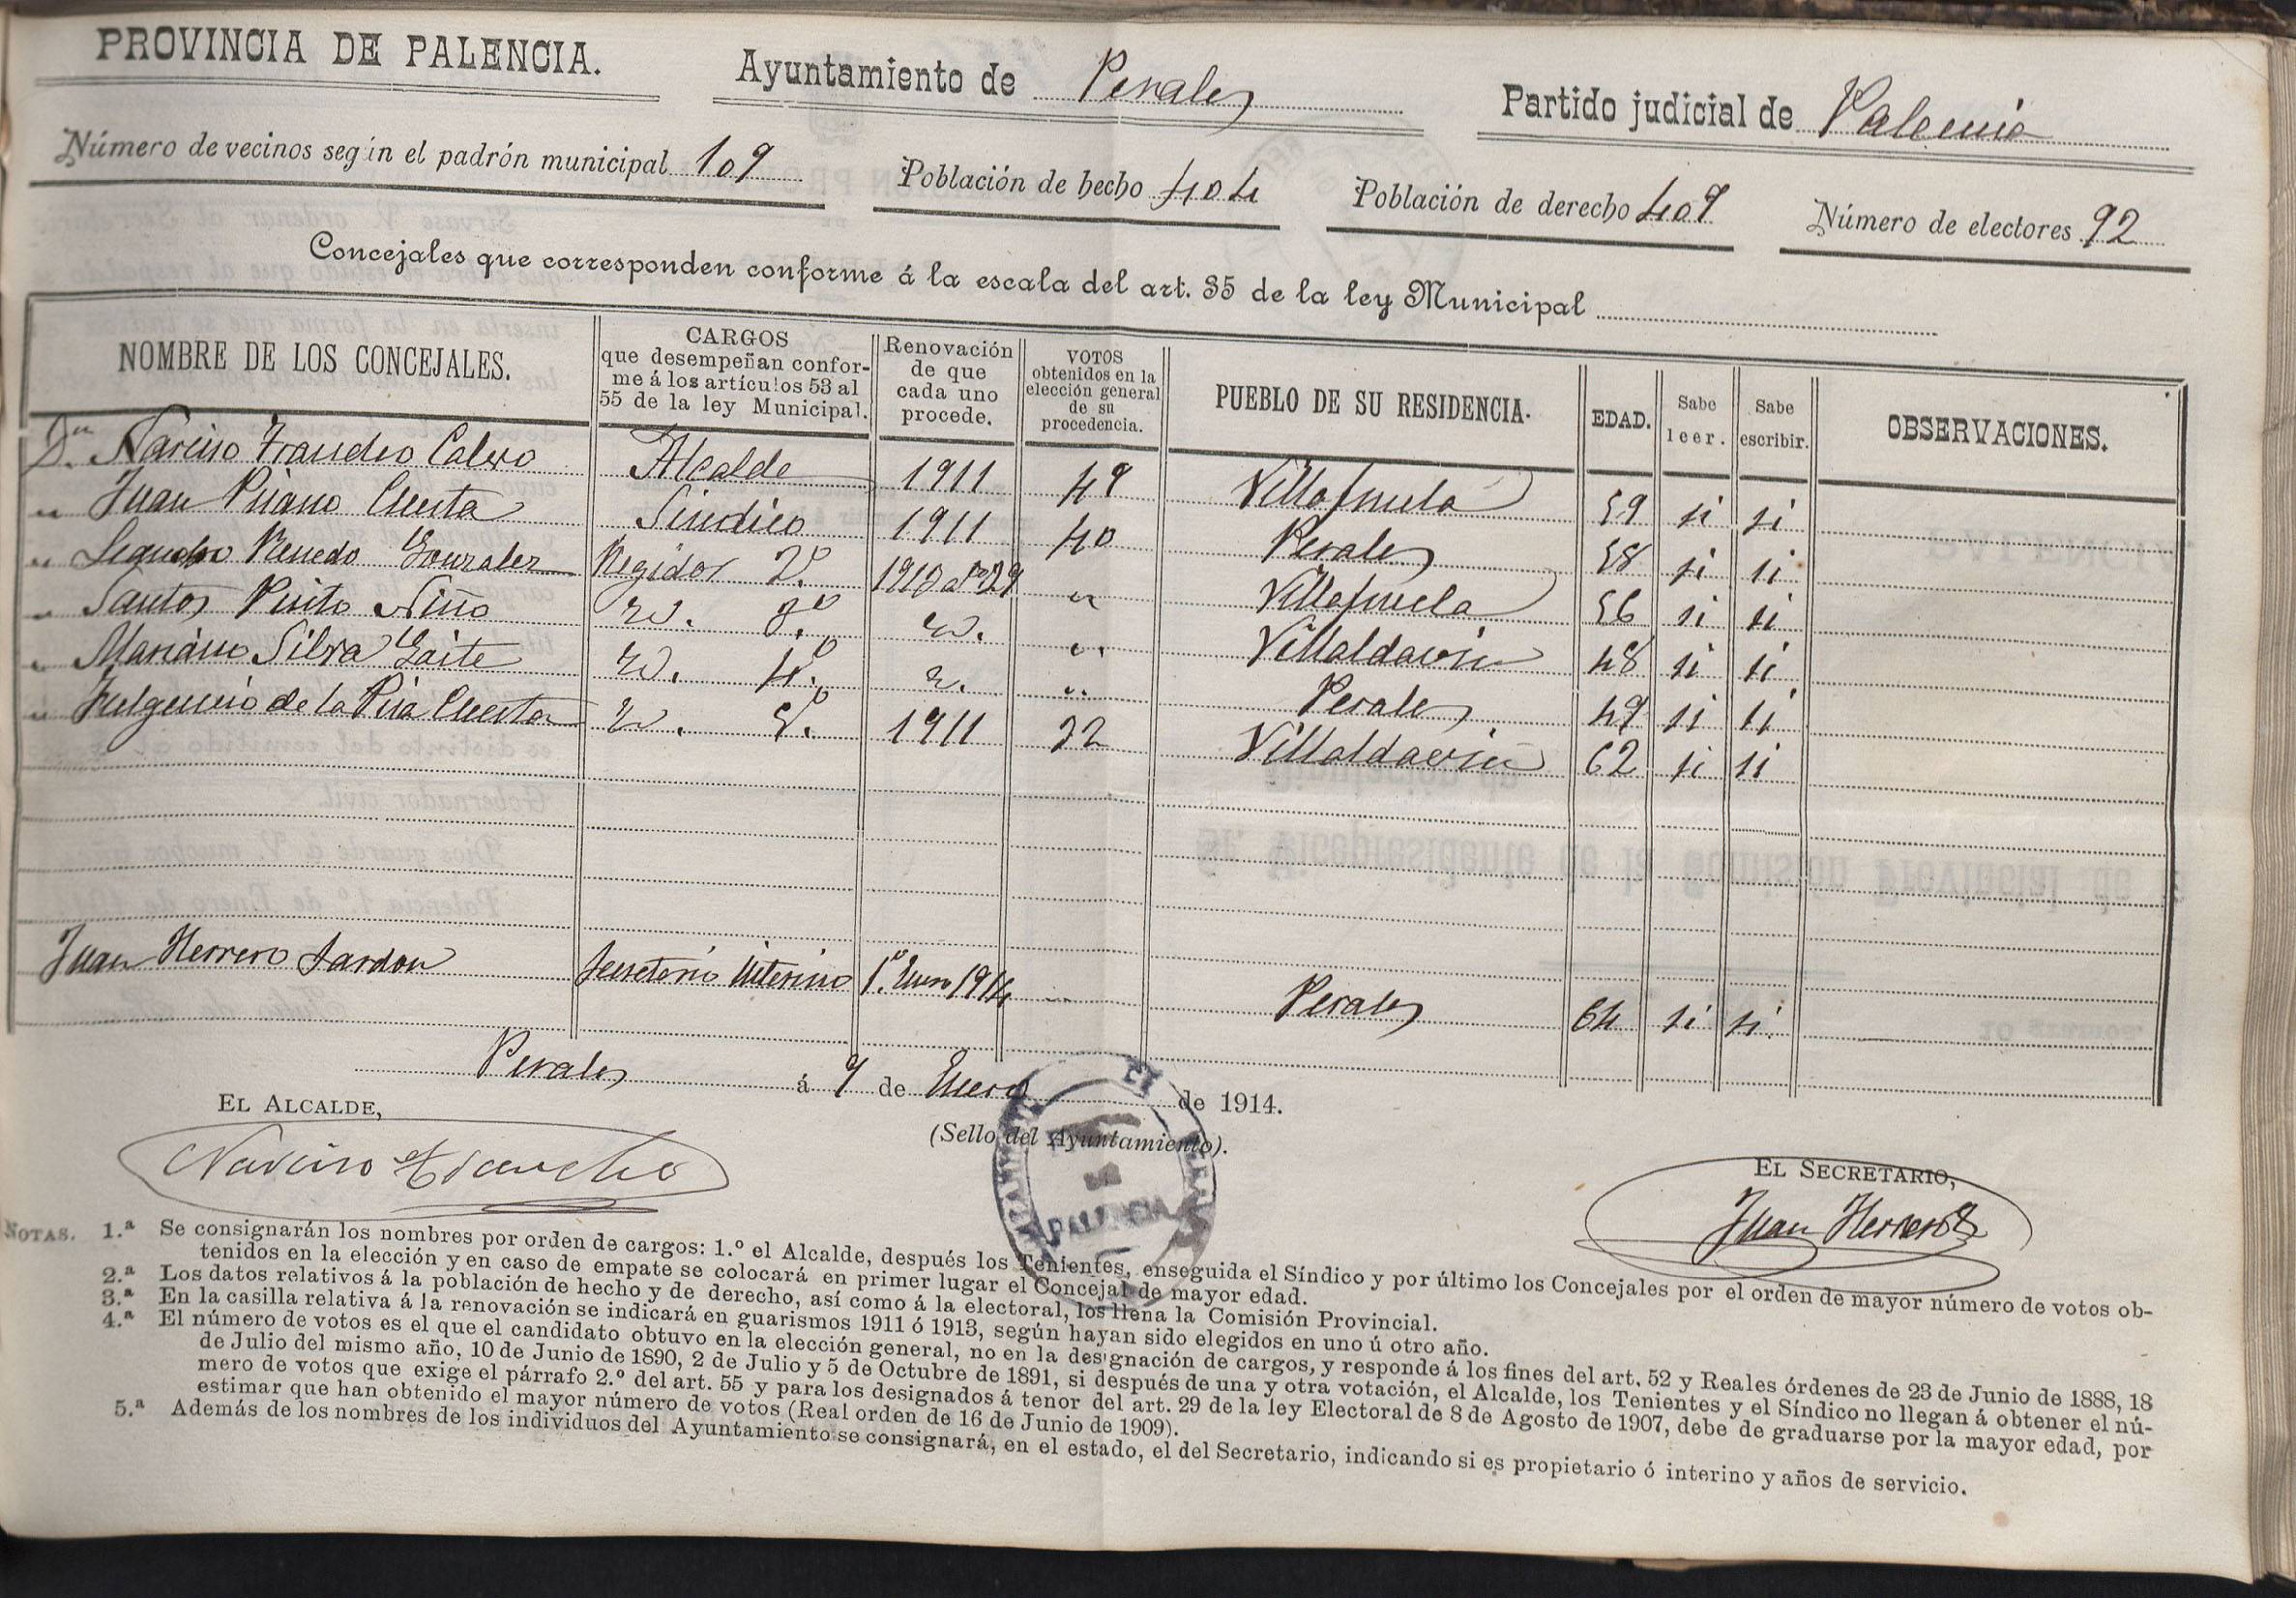 PROVINCIA DE PALENCIA.
Ayuntamiento de Perales
Partido judicial de Palencia
Número de vecinos según el padrón municipal 109
Población de hecho 404
Población de derecho 409
Número de electores 92
Concejales que corresponden conforme á la escala del art. 35 de la ley Municipal
NOMBRE DE LOS CONCEJALES.
CARGOS
que desempeñan confor-
me á los artículos 53 al
55 de la ley Municipal.
Renovación
de que
cada uno
procede.
VOTOS
obtenidos en la
elección general
de su
procedencia.
PUEBLO DE SU RESIDENCIA.
EDAD.
Sabe
leer.
Sabe
escribir.
OBSERVACIONES.
Dn Narciso Francho Calvo Alcalde 1911 49 Villafruela 59 si si
" Juan Pisano Cuesta Síndico 1911 40 Perales 58 si si
" Renedo Gonzalez Regidor 2.º 1913 29 " Villafruela 56 si si
" Santos Pinto Niño id. 3.º id. " Villaldavin 48 si si
" Mariano Silva Gaite id. 4.º id. " Perales 49 si si
" Fulgencio de la Pisa Cuesta id. 5.º 1911 32 Villaldavin 62 si si
Juan Herrero Sardon Secretario interino 1.º Enero 1914 " Perales 64 si si
Perales á 9 de Enero de 1914.
EL ALCALDE,
(Sello del Ayuntamiento).
EL SECRETARIO,
Narciso Francho
PALENCIA
Juan Herrero
NOTAS. 1.ª Se consignarán los nombres por orden de cargos: 1.º el Alcalde, después los Tenientes, enseguida el Síndico y por último los Concejales por el orden de mayor número de votos ob-
tenidos en la elección y en caso de empate se colocará en primer lugar el Concejal de mayor edad.
2.ª Los datos relativos á la población de hecho y de derecho, así como á la electoral, los llena la Comisión Provincial.
3.ª En la casilla relativa á la renovación se indicará en guarismos 1911 ó 1913, según hayan sido elegidos en uno ú otro año.
4.ª El número de votos es el que el candidato obtuvo en la elección general, no en la designación de cargos, y responde á los fines del art. 52 y Reales órdenes de 23 de Junio de 1888, 18
de Julio del mismo año, 10 de Junio de 1890, 2 de Julio y 5 de Octubre de 1891, si después de una y otra votación, el Alcalde, los Tenientes y el Síndico no llegan á obtener el nú-
mero de votos que exige el párrafo 2.º del art. 55 y para los designados á tenor del art. 29 de la ley Electoral de 8 de Agosto de 1907, debe de graduarse por la mayor edad, por
estimar que han obtenido el mayor número de votos (Real orden de 16 de Junio de 1909).
5.ª Además de los nombres de los individuos del Ayuntamiento se consignará, en el estado, el del Secretario, indicando si es propietario ó interino y años de servicio.